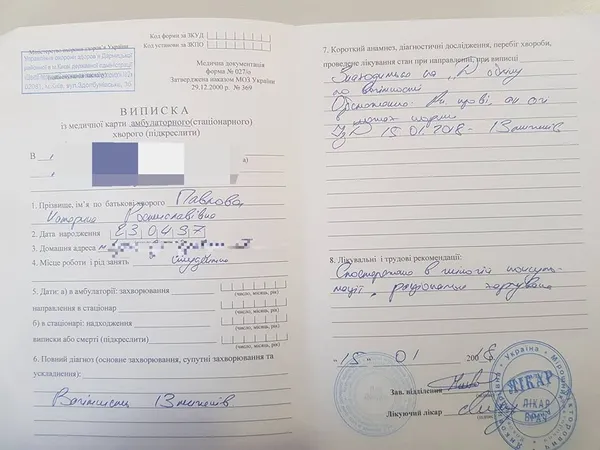 Код форми за ЗКУД
Код установи за ЗКПО
Міністерство охорони здоров'я України
Управління охорони здоров'я Дарницької
районної в м.Києві державної адміністрації
02091, м. Київ, вул.Здолбунівська, 3б
Медична документація
форма № 027/о
Затверджена наказом МОЗ України
29.12.2000 р. № 369
ВИПИСКА
із медичної карти амбулаторного (стаціонарного)
хворого (підкреслити)
В
а)
1. Прізвище, ім'я по батькові хворого Павлова
Катерина Ростиславівна
2. Дата народження 230497
3. Домашня адреса
4. Місце роботи і рід занять студентка
5. Дати: а) в амбулаторії: захворювання
(число, місяць, рік)
направлення в стаціонар
(число, місяць, рік)
б) в стаціонарі: надходження
(число, місяць, рік)
виписки або смерті (підкреслити)
(число, місяць, рік)
6. Повний діагноз (основне захворювання, супутні захворювання та
ускладнення):
Вагітність 13 тижнів
7. Короткий анамнез, діагностичні дослідження, перебіг хвороби,
проведене лікування стан при направленні, при виписці
Знаходиться на "Д" обліку
по вагітності
Обстежена: крові, ан сечі
в межах норми
УЗД 15.01.2018 - 13 тижнів
8. Лікувальні і трудові рекомендації:
Спостереження в жіночій консуль-
тації, раціональне харчування
15 01 2018
Зав. відділення
Лікуючий лікар
Україна
ЛІКАР
ЛІКАР
ВРАЧ